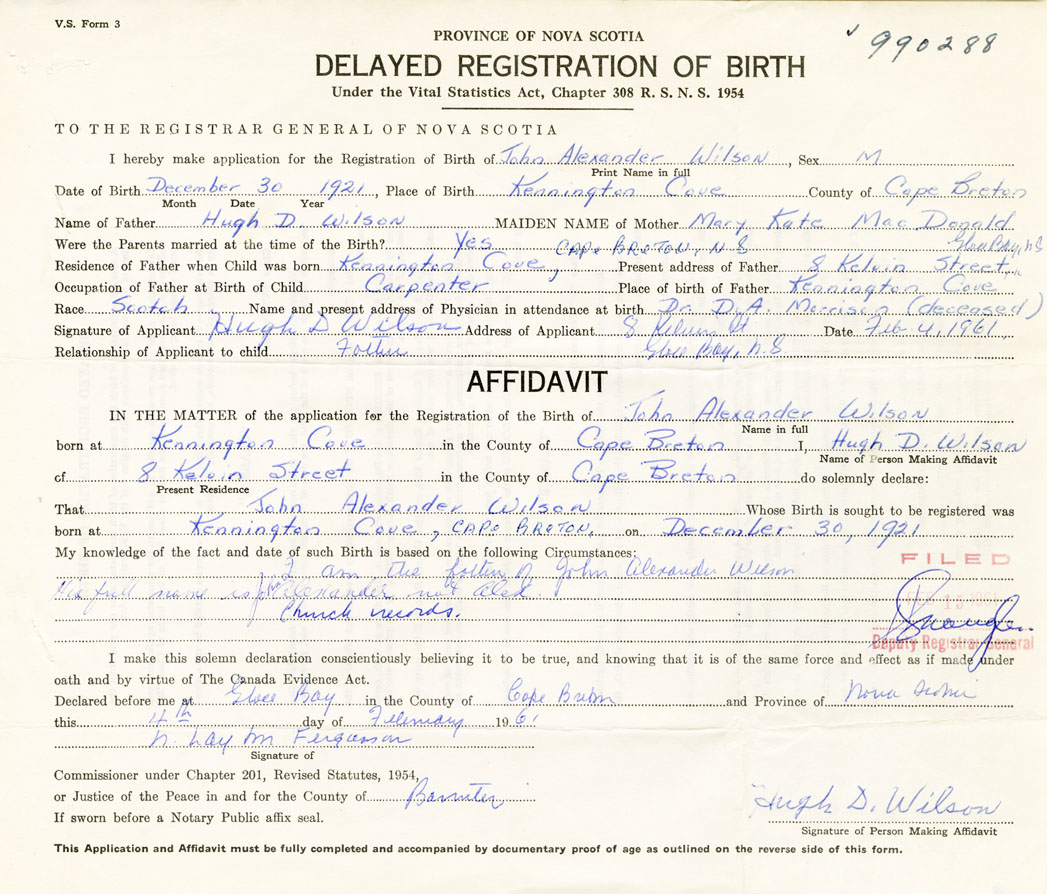 V.S. Form 3
PROVINCE OF NOVA SCOTIA
990288
DELAYED REGISTRATION OF BIRTH
Under the Vital Statistics Act, Chapter 308 R. S. N. S. 1954
TO THE REGISTRAR GENERAL OF NOVA SCOTIA
I hereby make application for the Registration of Birth of John Alexander Wilson, Sex M
Print Name in full
Date of Birth December 30 1921, Place of Birth Kennington Cove County of Cape Breton
Month Date Year
Name of Father Hugh D. Wilson MAIDEN NAME of Mother Mary Kate Mac Donald
Were the Parents married at the time of the Birth? Yes CAPE BRETON, N S Glace Bay, N.S
Residence of Father when Child was born Kennington Cove, Present address of Father 8 Kelvin Street
Occupation of Father at Birth of Child Carpenter Place of birth of Father Kennington Cove
Race Scotch Name and present address of Physician in attendance at birth Dr. D.A. Morrison (deceased)
Signature of Applicant Hugh D Wilson Address of Applicant 8 Kelvin St Date Feb 4, 1961
Relationship of Applicant to child Father Glace Bay, N.S.
AFFIDAVIT
IN THE MATTER of the application for the Registration of the Birth of John Alexander Wilson
Name in full
born at Kennington Cove in the County of Cape Breton I, Hugh D. Wilson
Name of Person Making Affidavit
of 8 Kelvin Street in the County of Cape Breton do solemnly declare:
Present Residence
That John Alexander Wilson Whose Birth is sought to be registered was
born at Kennington Cove, CAPE BRETON, on December 30, 1921
My knowledge of the fact and date of such Birth is based on the following Circumstances:
FILED
I am the father of John Alexander Wilson
His full name is Alexander not Alex.
Church records.
Deputy Registrar General
I make this solemn declaration conscientiously believing it to be true, and knowing that it is of the same force and effect as if made under
oath and by virtue of The Canada Evidence Act.
Declared before me at Glace Bay in the County of Cape Breton and Province of Nova Scotia
this 4th day of February 1961
Ferguson
Signature of
Commissioner under Chapter 201, Revised Statutes, 1954,
or Justice of the Peace in and for the County of Barrister
If sworn before a Notary Public affix seal.
Hugh D. Wilson
Signature of Person Making Affidavit
This Application and Affidavit must be fully completed and accompanied by documentary proof of age as outlined on the reverse side of this form.